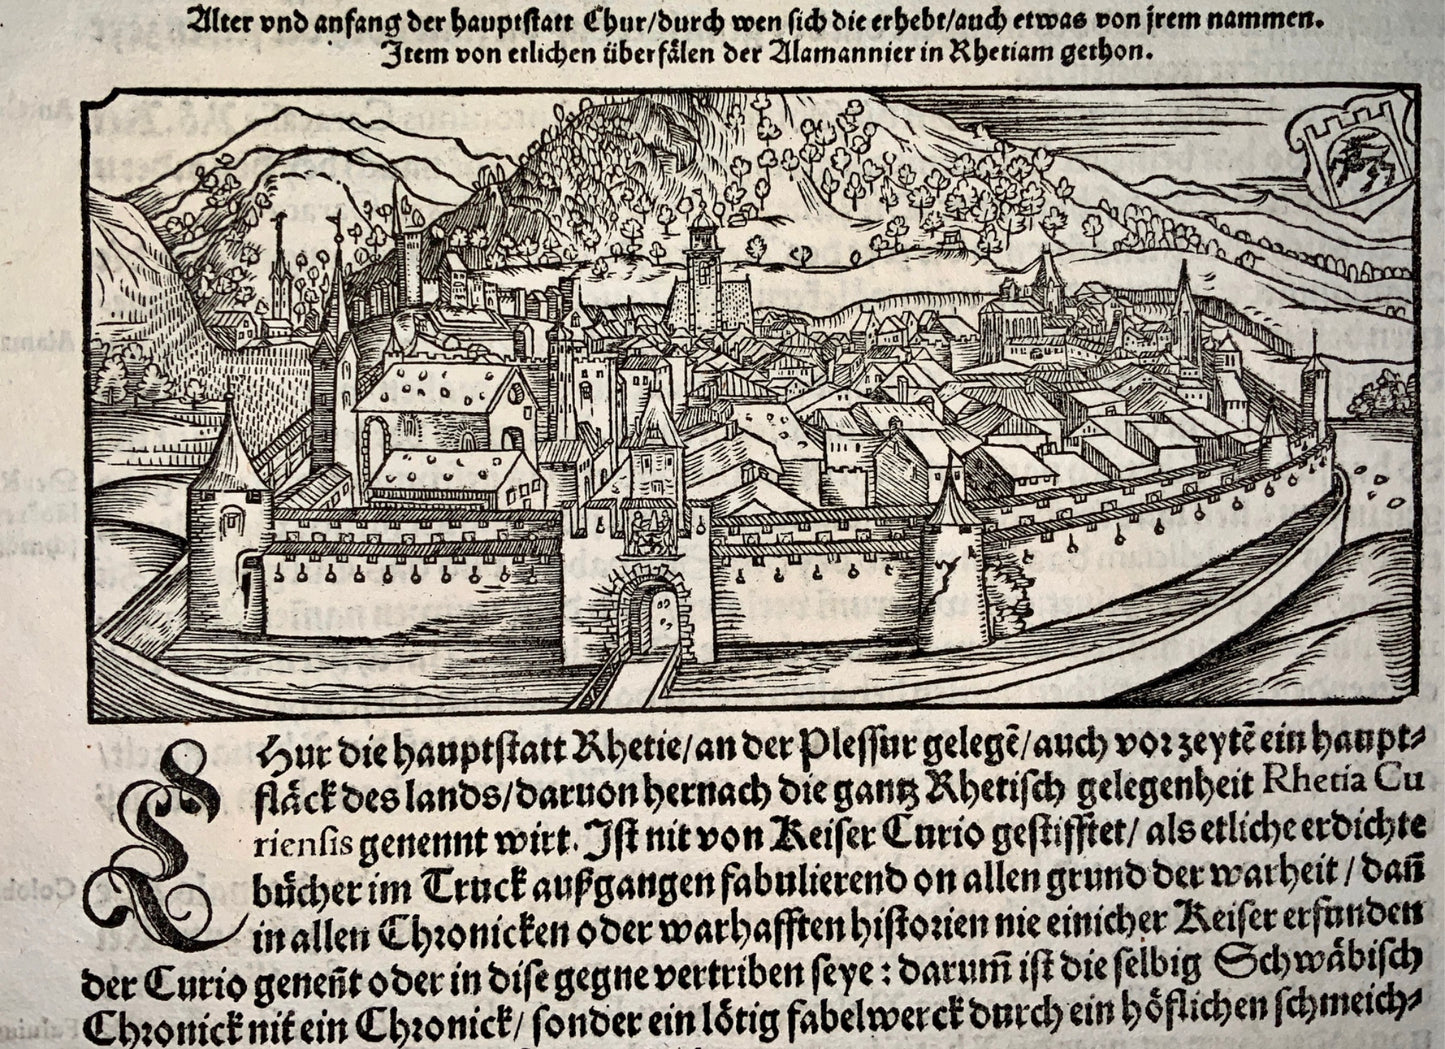 Alter vnd anfang der hauptstatt Chur/durch wen sich die erhebt/auch etwas von jrem nammen.
Jtem von etlichen überfälen der Alamannier in Rhetiam gethon.
CHur die hauptstatt Rhetie/an der Plessur gelegē/auch vor zeytē ein haupt⸗
fläck des lands/daruon hernach die gantz Rhetisch gelegenheit Rhetia Cu
riensis genennt wirt. Jst nit von Keiser Curio gestifftet/ als etliche erdichte
bücher im Truck außgangen fabulierend on allen grund der warheit/dañ
in allen Chronicken oder warhafften historien nie einicher Keiser erfunden
der Curio geneñt oder in dise gegne vertriben seye: darum̄ ist die selbig Schwäbisch
Chronick nit ein Chronick/ sonder ein lötig fabelwerck durch ein höflichen schmeich⸗